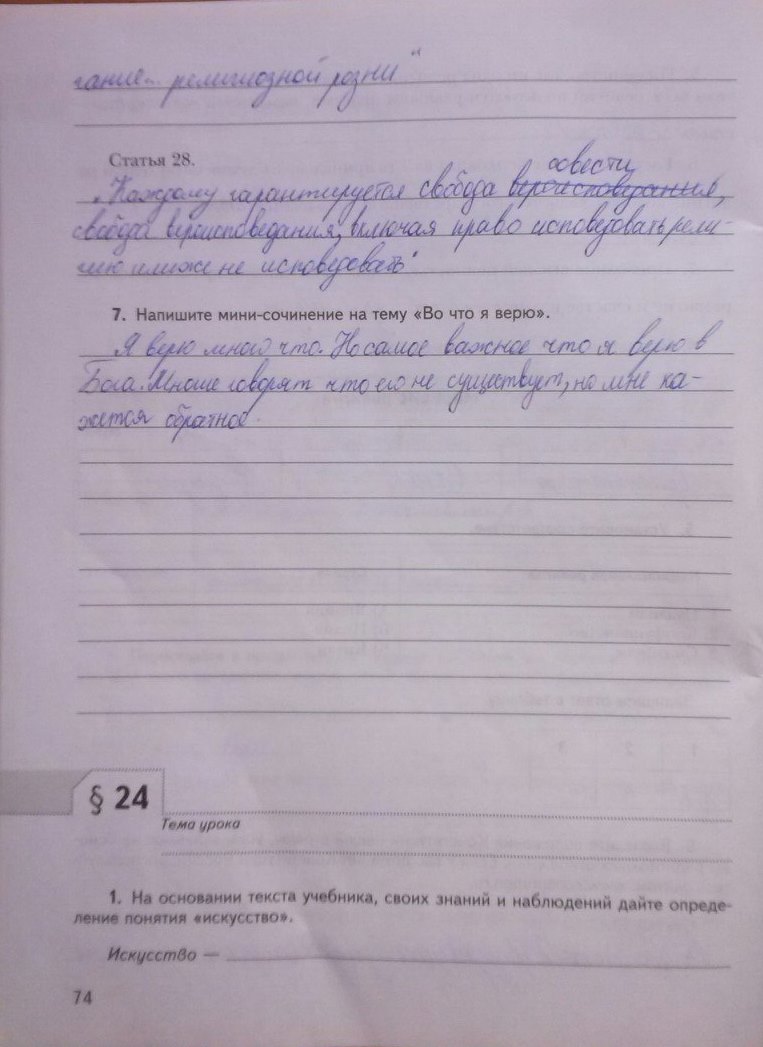 гание религиозной розни"
Статья 28.
совести,
„Каждому гарантируется свобода вероисповедания,
свобода вероисповедания, включая право исповедовать рели-
гию или же не исповедовать"
7. Напишите мини-сочинение на тему «Во что я верю».
Я верю много что. Но самое важное что я верю в
Бога. Многие говорят что его не существует, но мне ка-
жется обратное.
§ 24
Тема урока
1. На основании текста учебника, своих знаний и наблюдений дайте опреде-
ление понятия «искусство».
Искусство —
74